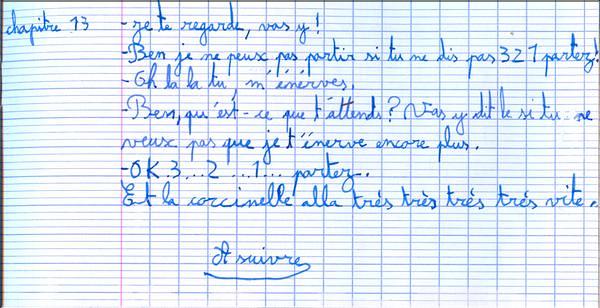 chapitre 13 - Je te regarde, vas y !
- Ben je ne peux pas partir si tu ne dis pas 3 2 1 partez !
- Oh la la tu, m'énerves.
- Ben, qu'est-ce que t'attends ? Vas y dit le si tu ne
veux pas que je t'énerve encore plus.
- OK 3...2 ...1... partez.
Et la coccinelle alla trés très trés trés vite.
A suivre